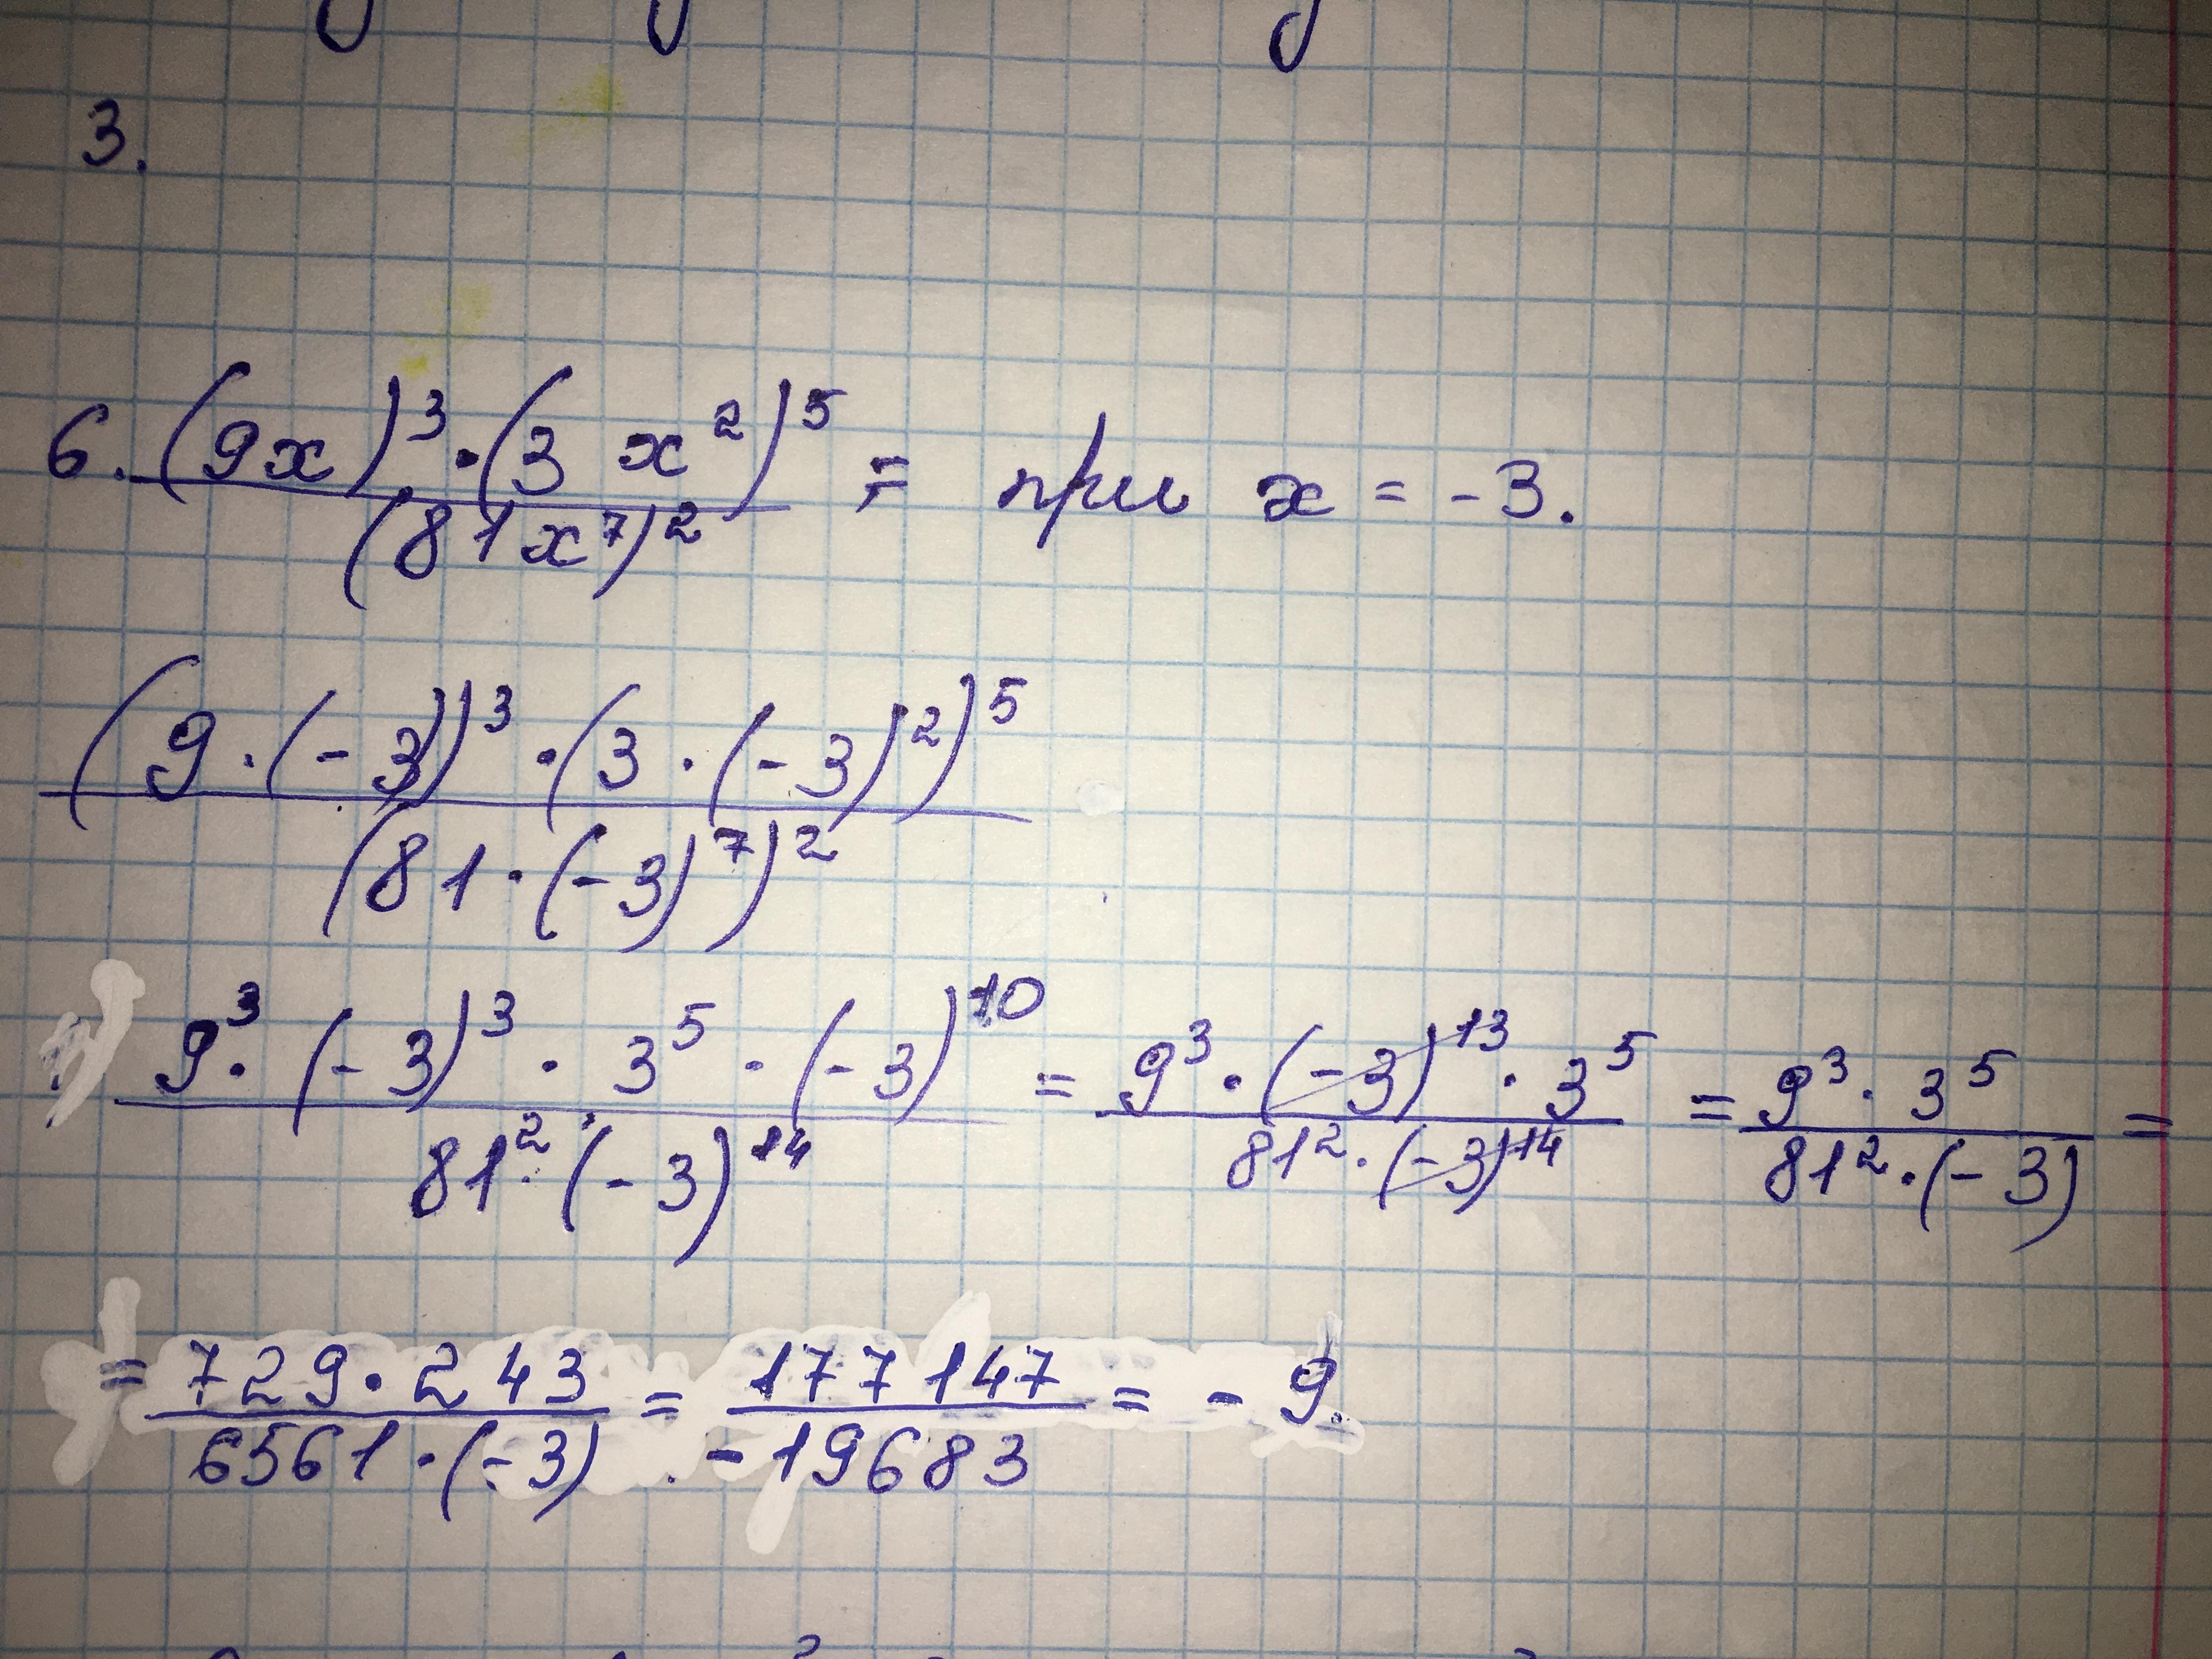 3.
6. (9x)³·(3x²)⁵ / (81x⁷)² = при x = -3.
(9·(-3))³·(3·(-3)²)⁵ / (81·(-3)⁷)²
9³·(-3)³·3⁵·(-3)¹⁰ / 81²·(-3)¹⁴ = 9³·(-3)¹³·3⁵ / 81²·(-3)¹⁴ = 9³·3⁵ / 81²·(-3) =
= 729·243 / 6561·(-3) = 177147 / -19683 = -9.